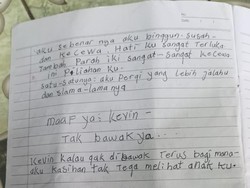 aku sebenar nya aku binggun - susah -
dan kecewa. Hati ku sangat Terluka
Tambah Parah iki sangat - sangat kecewa
Ini Pilihan ku.
satu-satunya: aku Pergi yang Lebih jalahu
dan slama-lama nya
maaf ya: Kevin -
Tak bawak ya...
Kevin kalau gak di bawak Terus bagi mana -
aku kasihan tak Tega melihat anak ku -